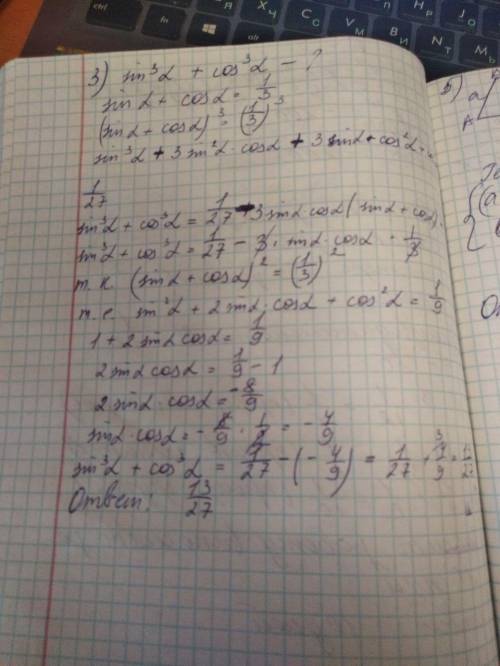 3) sin³α + cos³α - ?
sin α + cos α = 1/3
(sin α + cos α)³ = (1/3)³
sin³α + 3 sin²α · cos α + 3 sin α + cos²α +
1/27
sin³α + cos³α = 1/27 - 3 sin α cos α (sin α + cos α)
sin³α + cos³α = 1/27 - 3 · sin α · cos α · 1/3
т.к. (sin α + cos α)² = (1/3)²
т.е. sin²α + 2 sin α cos α + cos²α = 1/9
1 + 2 sin α cos α = 1/9
2 sin α cos α = 1/9 - 1
2 sin α · cos α = -8/9
sin α · cos α = - 8/9 · 1/2 = - 4/9
sin³α + cos³α = 1/27 - (- 4/9) = 1/27 + 4/9 =
Ответ: 13/27
5)
a
A